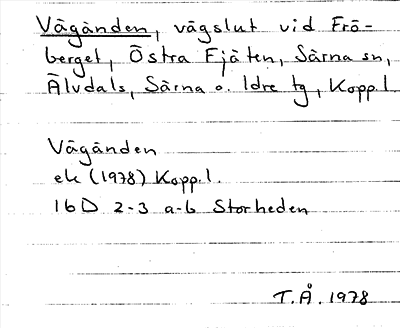 Vägänden, vägslut vid Frö-
berget, Östra Fjäten, Särna sn,
Älvdals, Särna o. Idre tg, Kopp.l
Vägänden
ek (1978) Kopp.l.
16D 2-3 a-b Storheden
T.Å. 1978